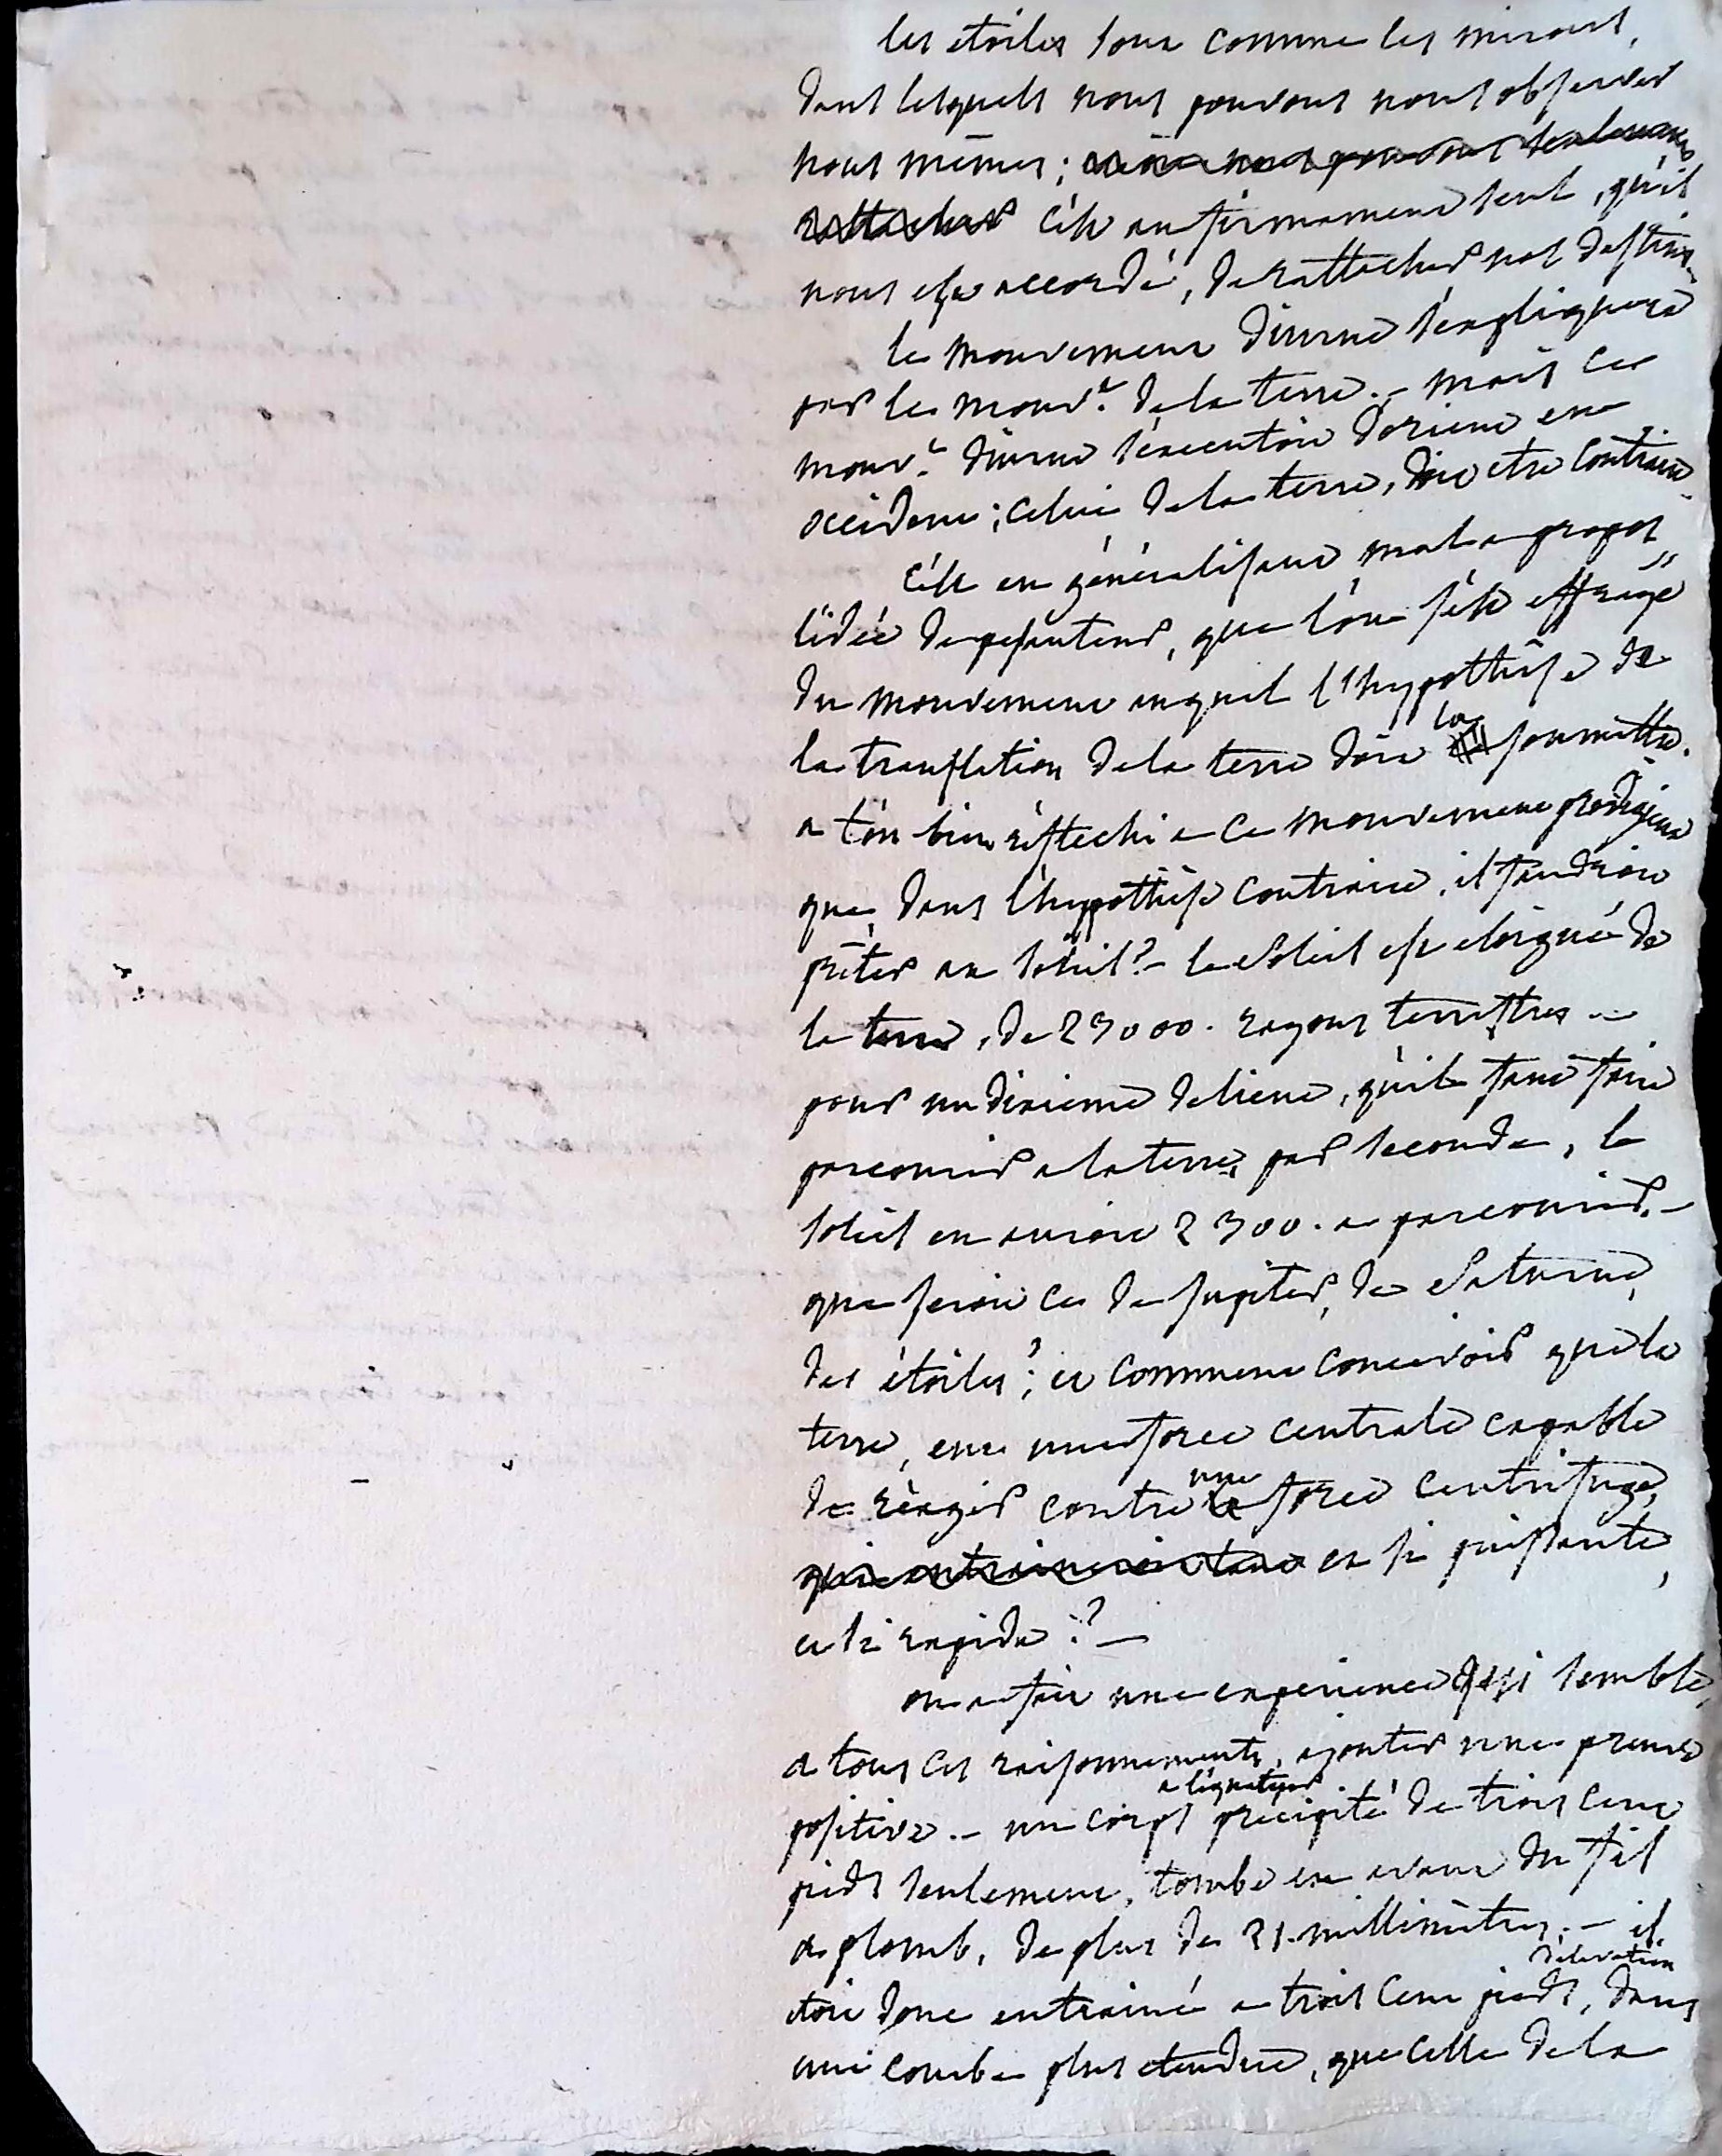 les étoiles sont comme les miroirs,
dans lesquels nous pouvons nous observer
nous mêmes; nous pouvons seulement
rattacher c'est au firmament seul, qu'il
nous est accordé, de rattacher nos destins.
le mouvement diurne s'expliquera
par le mouv.t de la terre. – mais ce
mouv.t diurne s'executoit d'orient en
occident; celui de la terre, doit etre contraire.
c'est en généralisant mal a propos
l'idée de pesanteur, que l'on s'est effrayé
du mouvement auquel l'hypothèse de
la translation de la terre doit la soumettre.
a t'on bien réflechi a ce mouvement prodigieux
que, dans l'hypothèse contraire, il faudroit
prêter au soleil? – le soleil est eloigné de
la terre, de 23000. rayons terrestres –
pour un dixieme de lieue, qu'il faut faire
parcourir a la terre, par seconde, le
soleil en auroit 2300. a parcourir. –
que seroit ce de jupiter, de saturne,
des étoiles? et comment concevoir que la
terre, eut une force centrale capable
de réagir contre une force centrifuge,
qui entraineroit tout et si puissante,
et si rapide? –
on a fait une experience qui semble,
a tous ces raisonnements, ajouter une preuve
positive. – un corps a l'equateur précipité de trois cent
pieds seulement, tombe en avant du fil
a plomb, de plus de 21. millimètres. – il
etoit donc entrainé a trois cent pieds d'elevation, dans
une courbe plus etendue, que celle de la